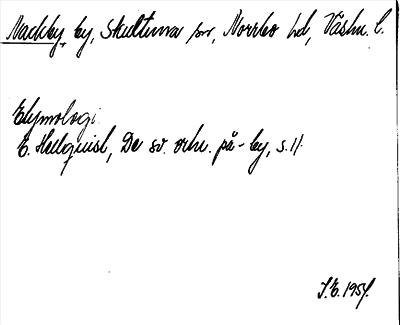 Nackby, by, Skultuna sn, Norrbo hd, Västm. l.
Etymologi.
E. Hellquist, De sv. ortn. på -by, s. 11.
J.E. 1954.